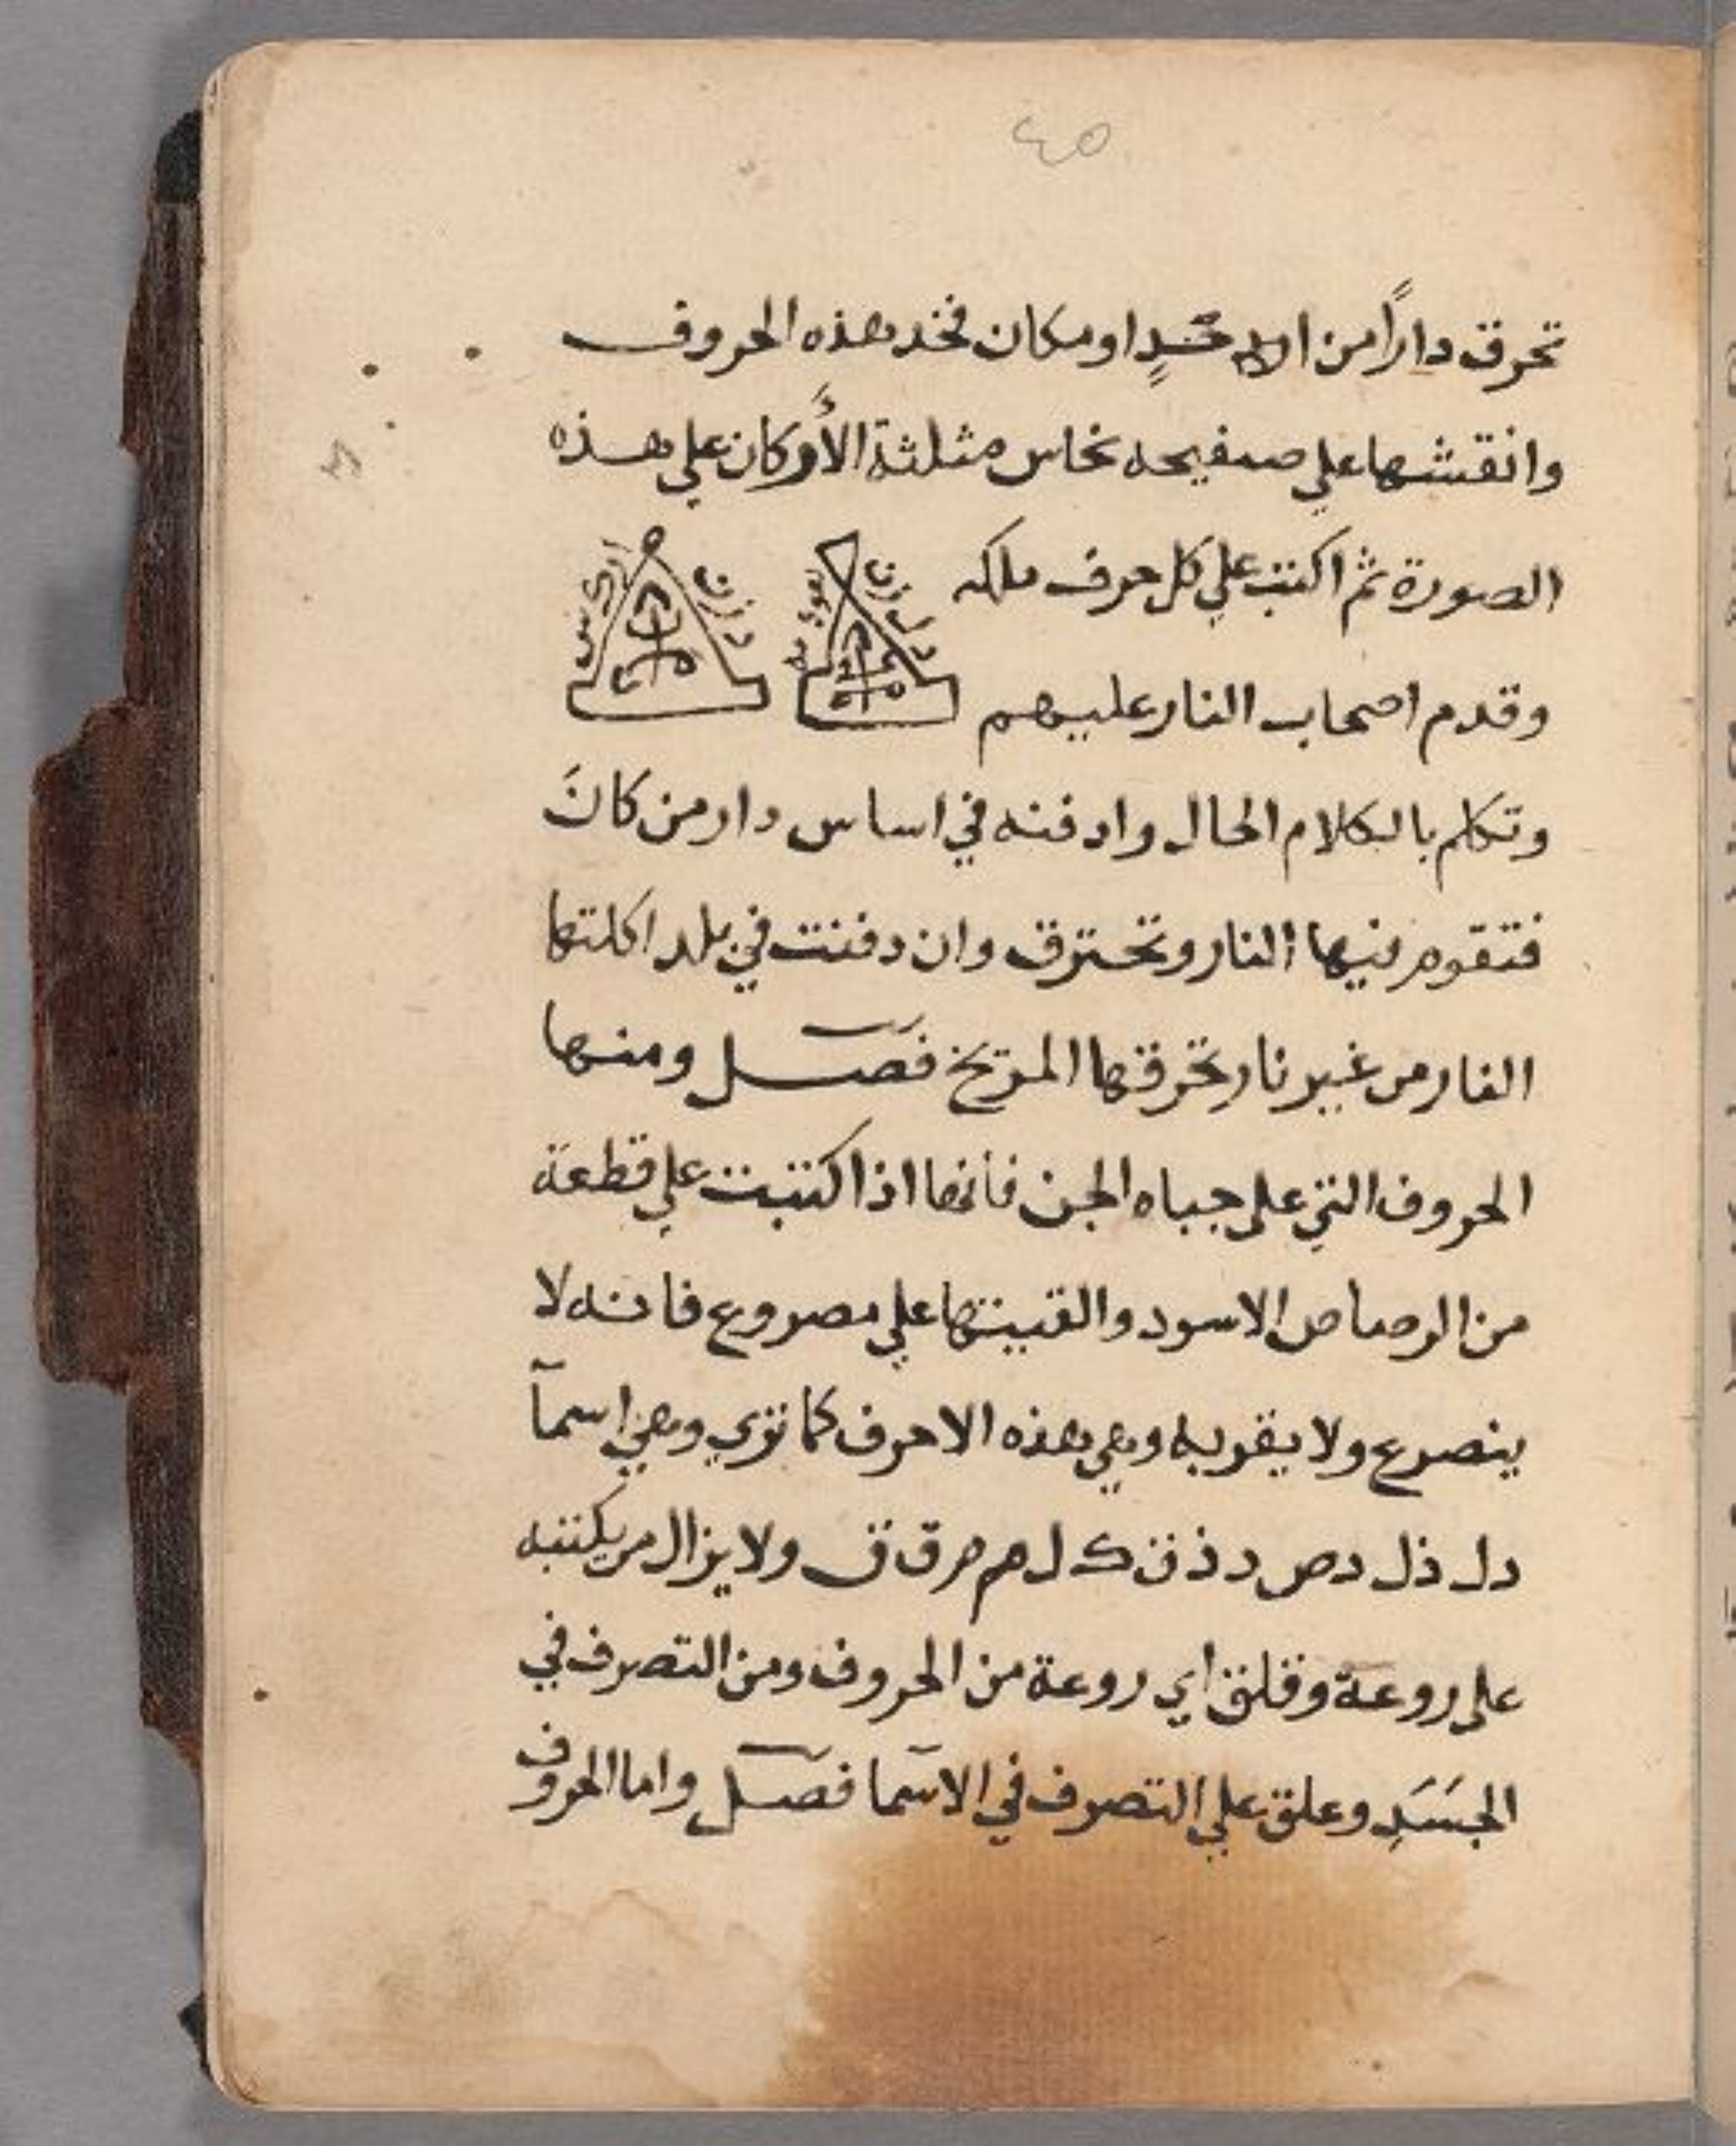 ٤٥
تحرق داراً من الاحدٍ او مكان فخد هذه الحروف
وانقشها علي صفيحه نحاس مثلثة الأركان علي هذه
الصورة ثم اكتب علي كل حرف ملكه
وقدم اصحاب النار عليهم
وتكلم بالكلام الحال وادفنه في اساس دار من كانَ
فتقوم فيها النار وتحترق وان دفنت في بلد اكلتها
النار من غير نار تحرقها المريخ فصل ومنها
الحروف التي على جباه الجن فانها اذا كتبت علي قطعة
من الرصاص الاسود والقيتها علي مصروع فانه لا
ينصرع ولا يقربه وهي هذه الاحرف كما تري وهي اسمآ
دل ذل دص د ذ ن ك ل م م ق ق ولا يزال من يكتبه
على روعة وقلق اي روعة من الحروف ومن التصرف في
الجسَدِ وعلق علي التصرف في الاسما فصل واما الحروف